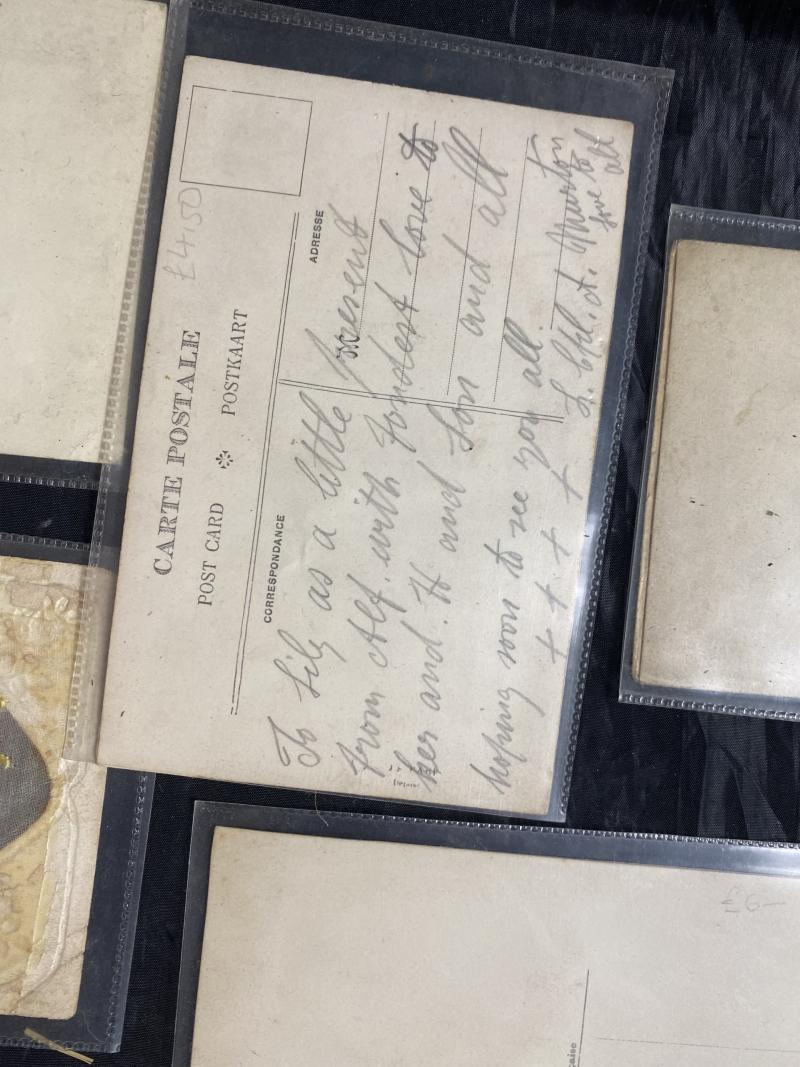 CARTE POSTALE
£4.50
POST CARD POSTKAART
CORRESPONDANCE
ADRESSE
To Lily as a little present
from Alf. with fondest love to
her and. H and Son and all
hoping soon to see you all.
+ + + +
love to
all
£6-